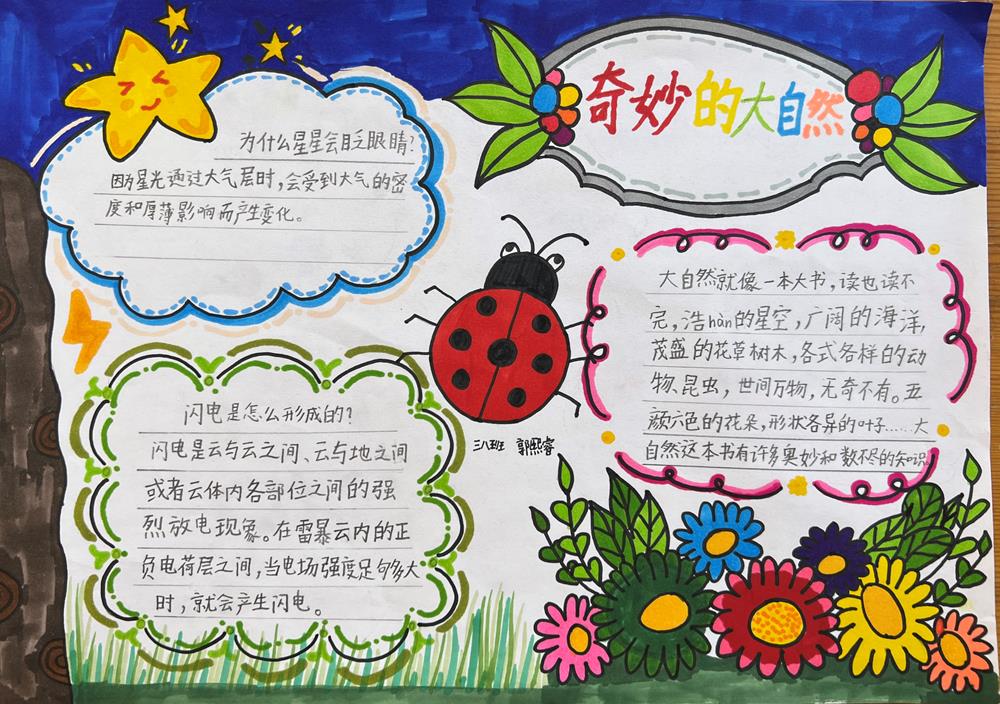 奇妙的大自然
为什么星星会眨眼睛?
因为星光通过大气层时,会受到大气的密
度和厚薄影响而产生变化。
大自然就像一本大书,读也读不
完,浩hàn的星空,广阔的海洋,
茂盛的花草树木,各式各样的动
物、昆虫,世间万物,无奇不有。五
颜六色的花朵,形状各异的叶子……大
自然这本书有许多奥妙和数不尽的知识。
闪电是怎么形成的?
闪电是云与云之间、云与地之间
或者云体内各部位之间的强
烈放电现象。在雷暴云内的正
负电荷层之间,当电场强度足够多大
时,就会产生闪电。
三八班 郭熙睿